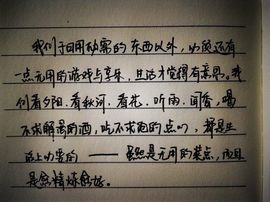 我们于日用必需的东西以外，必须还有
一点无用的游戏与享乐，生活才觉得有意思。我
们看夕阳，看秋河，看花，听雨，闻香，喝
不求解渴的酒，吃不求饱的点心，都是生
活上必要的——虽然是无用的装点，而且
是愈精炼愈好。